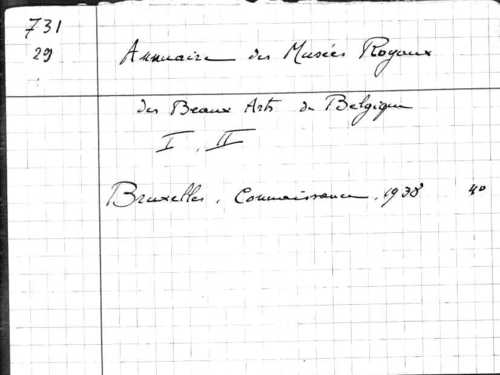 731
29 Annuaire des Musées Royaux
des Beaux Arts de Belgique
I. II
Bruxelles. Connaissance. 1938 4º